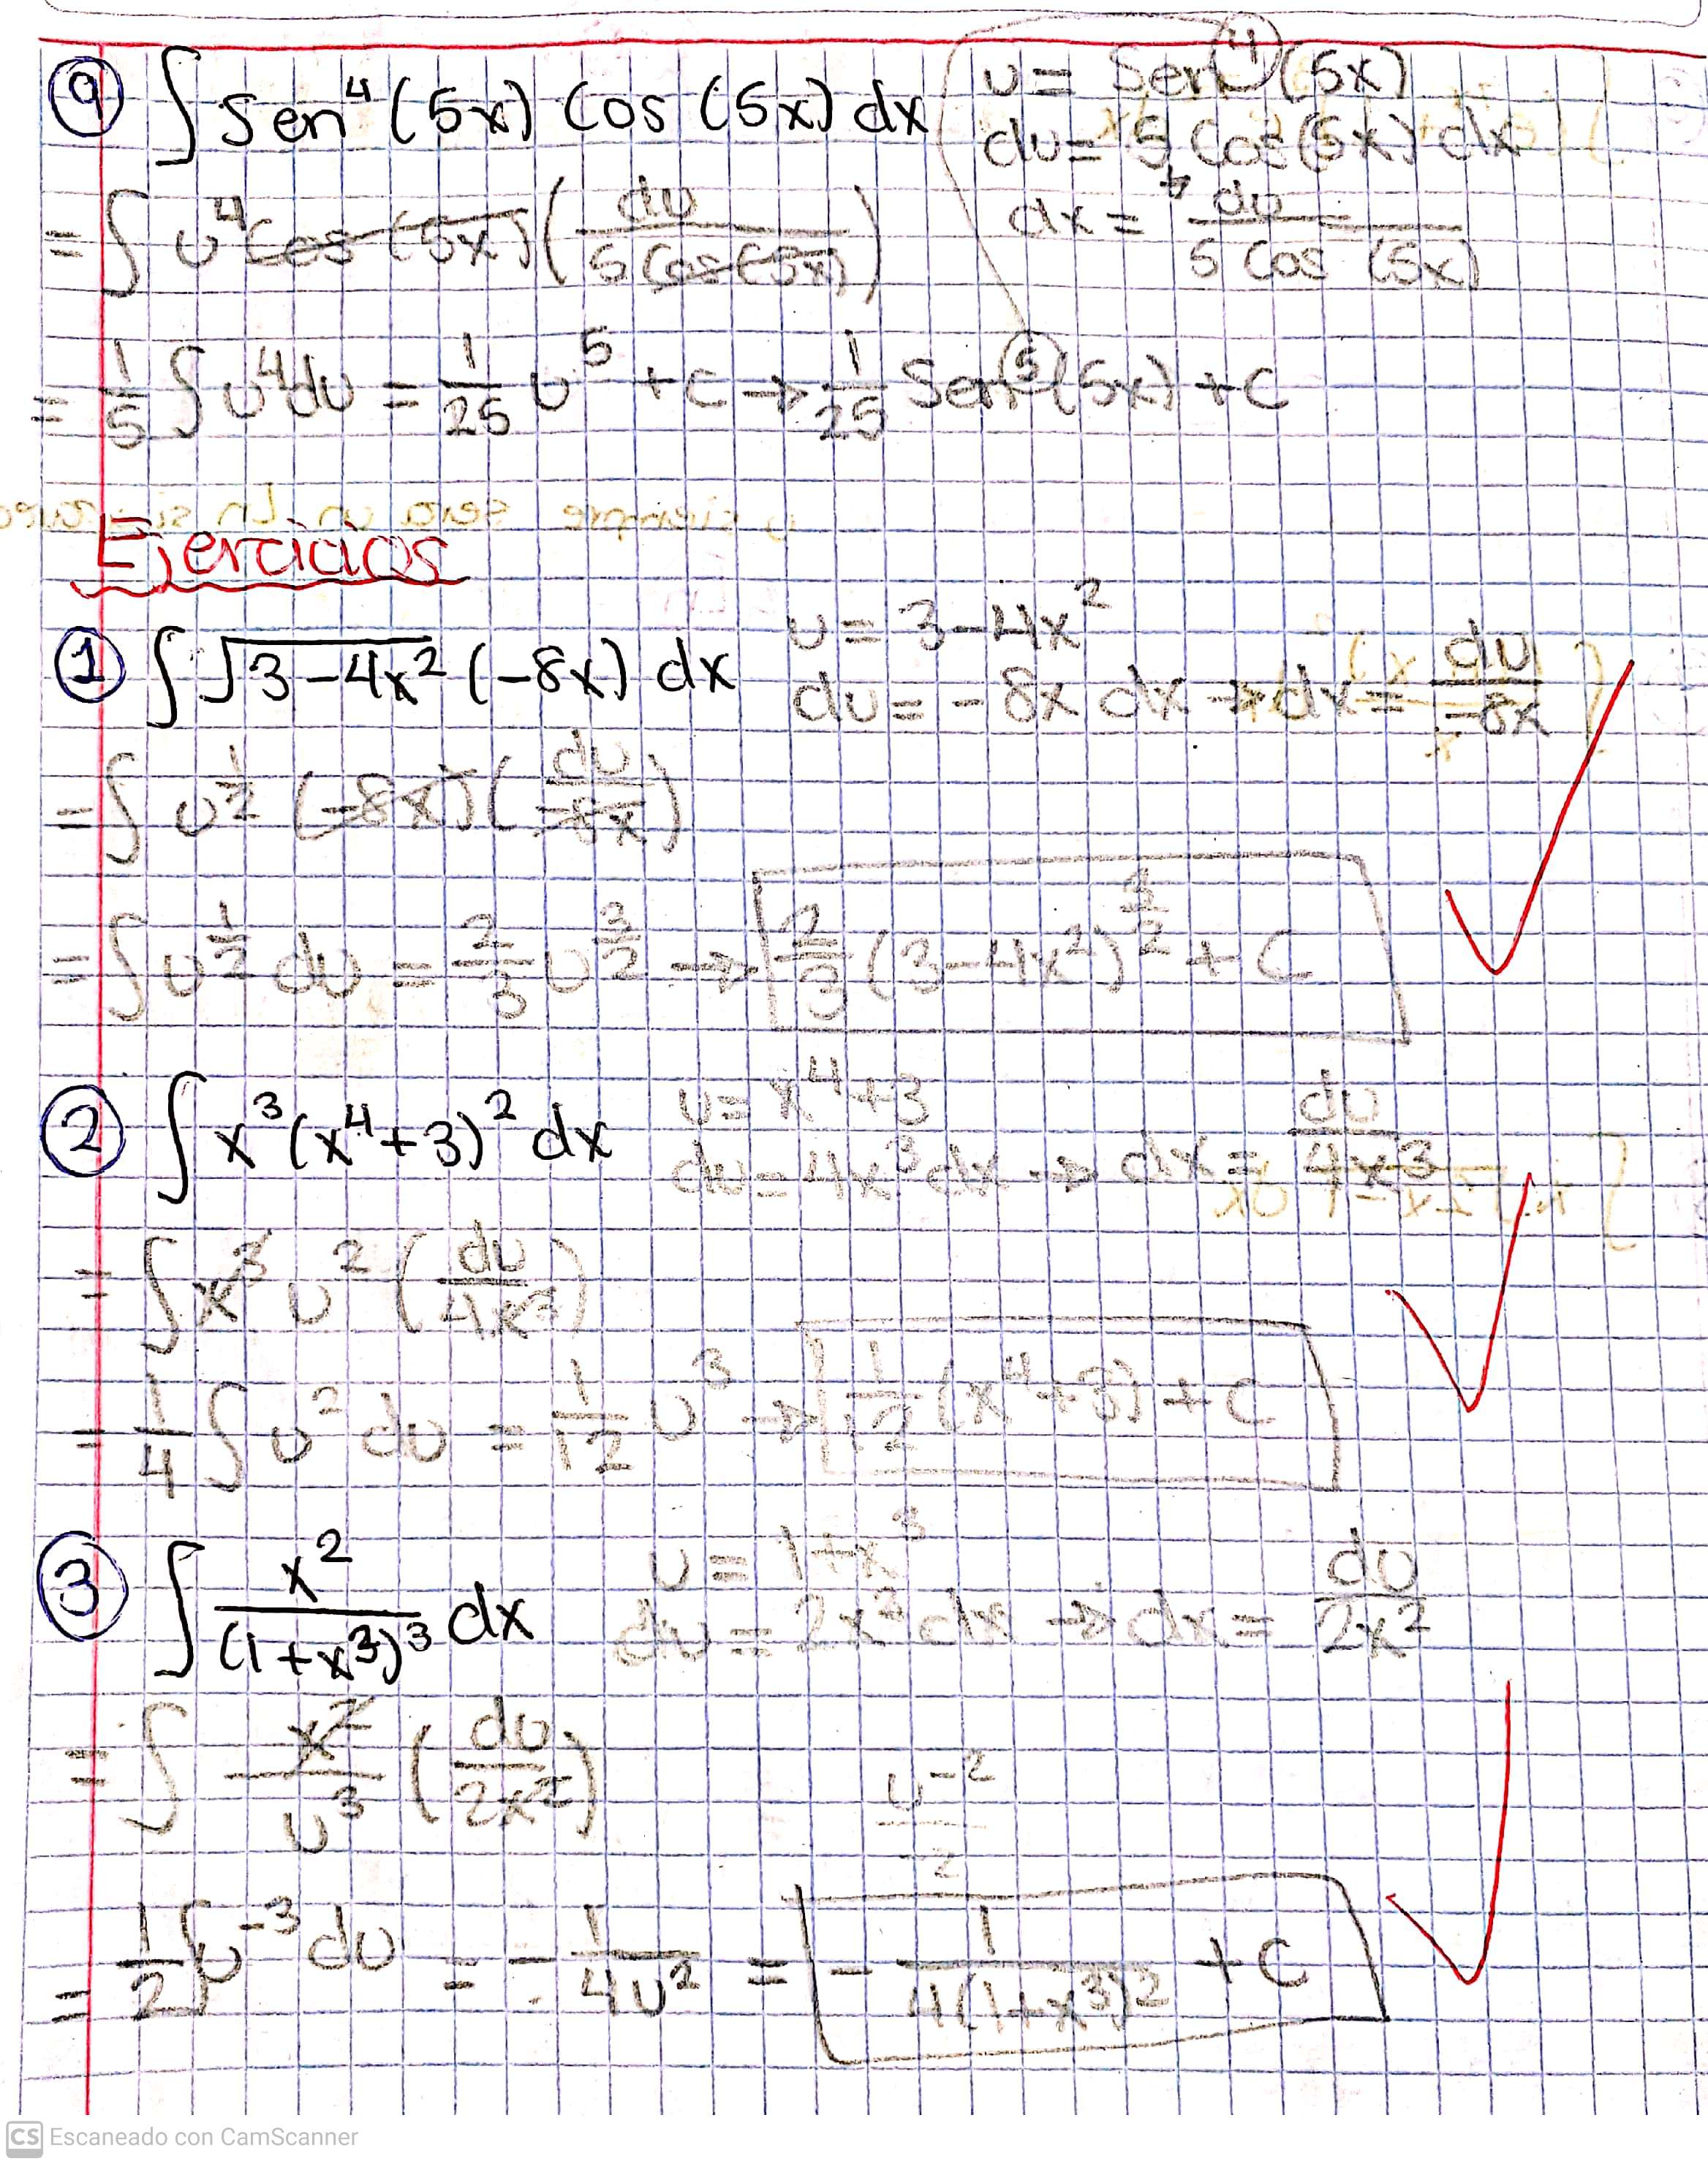 9 ∫ Sen⁴ (5x) Cos (5x) dx
u = Sen⁴(5x)
du = 5 Cos (5x) dx
dx = du / 5 Cos (5x)
= ∫ u⁴ Cos (5x) (du / 5 Cos (5x))
= 1/5 ∫ u⁴ du = 1/25 u⁵ + C → 1/25 Sen⁵ (5x) + C
Ejercicios
1 ∫ √3-4x² (-8x) dx
u = 3-4x²
du = -8x dx → dx = du / -8x
= ∫ u^1/2 (-8x) (du / -8x)
= ∫ u^1/2 du = 2/3 u^3/2 → 2/3 (3-4x²)^3/2 + C
2 ∫ x³ (x⁴+3)² dx
u = x⁴+3
du = 4x³ dx → dx = du / 4x³
= ∫ x³ u² (du / 4x³)
= 1/4 ∫ u² du = 1/12 u³ → 1/12 (x⁴+3) + C
3 ∫ x² / (1+x³)³ dx
u = 1+x³
du = 2x² dx → dx = du / 2x²
= ∫ x² / u³ (du / 2x²)
u⁻² / -2
= 1/2 ∫ u⁻³ du = - 1 / 4u² = - 1 / 4(1+x³)² + C
CS Escaneado con CamScanner